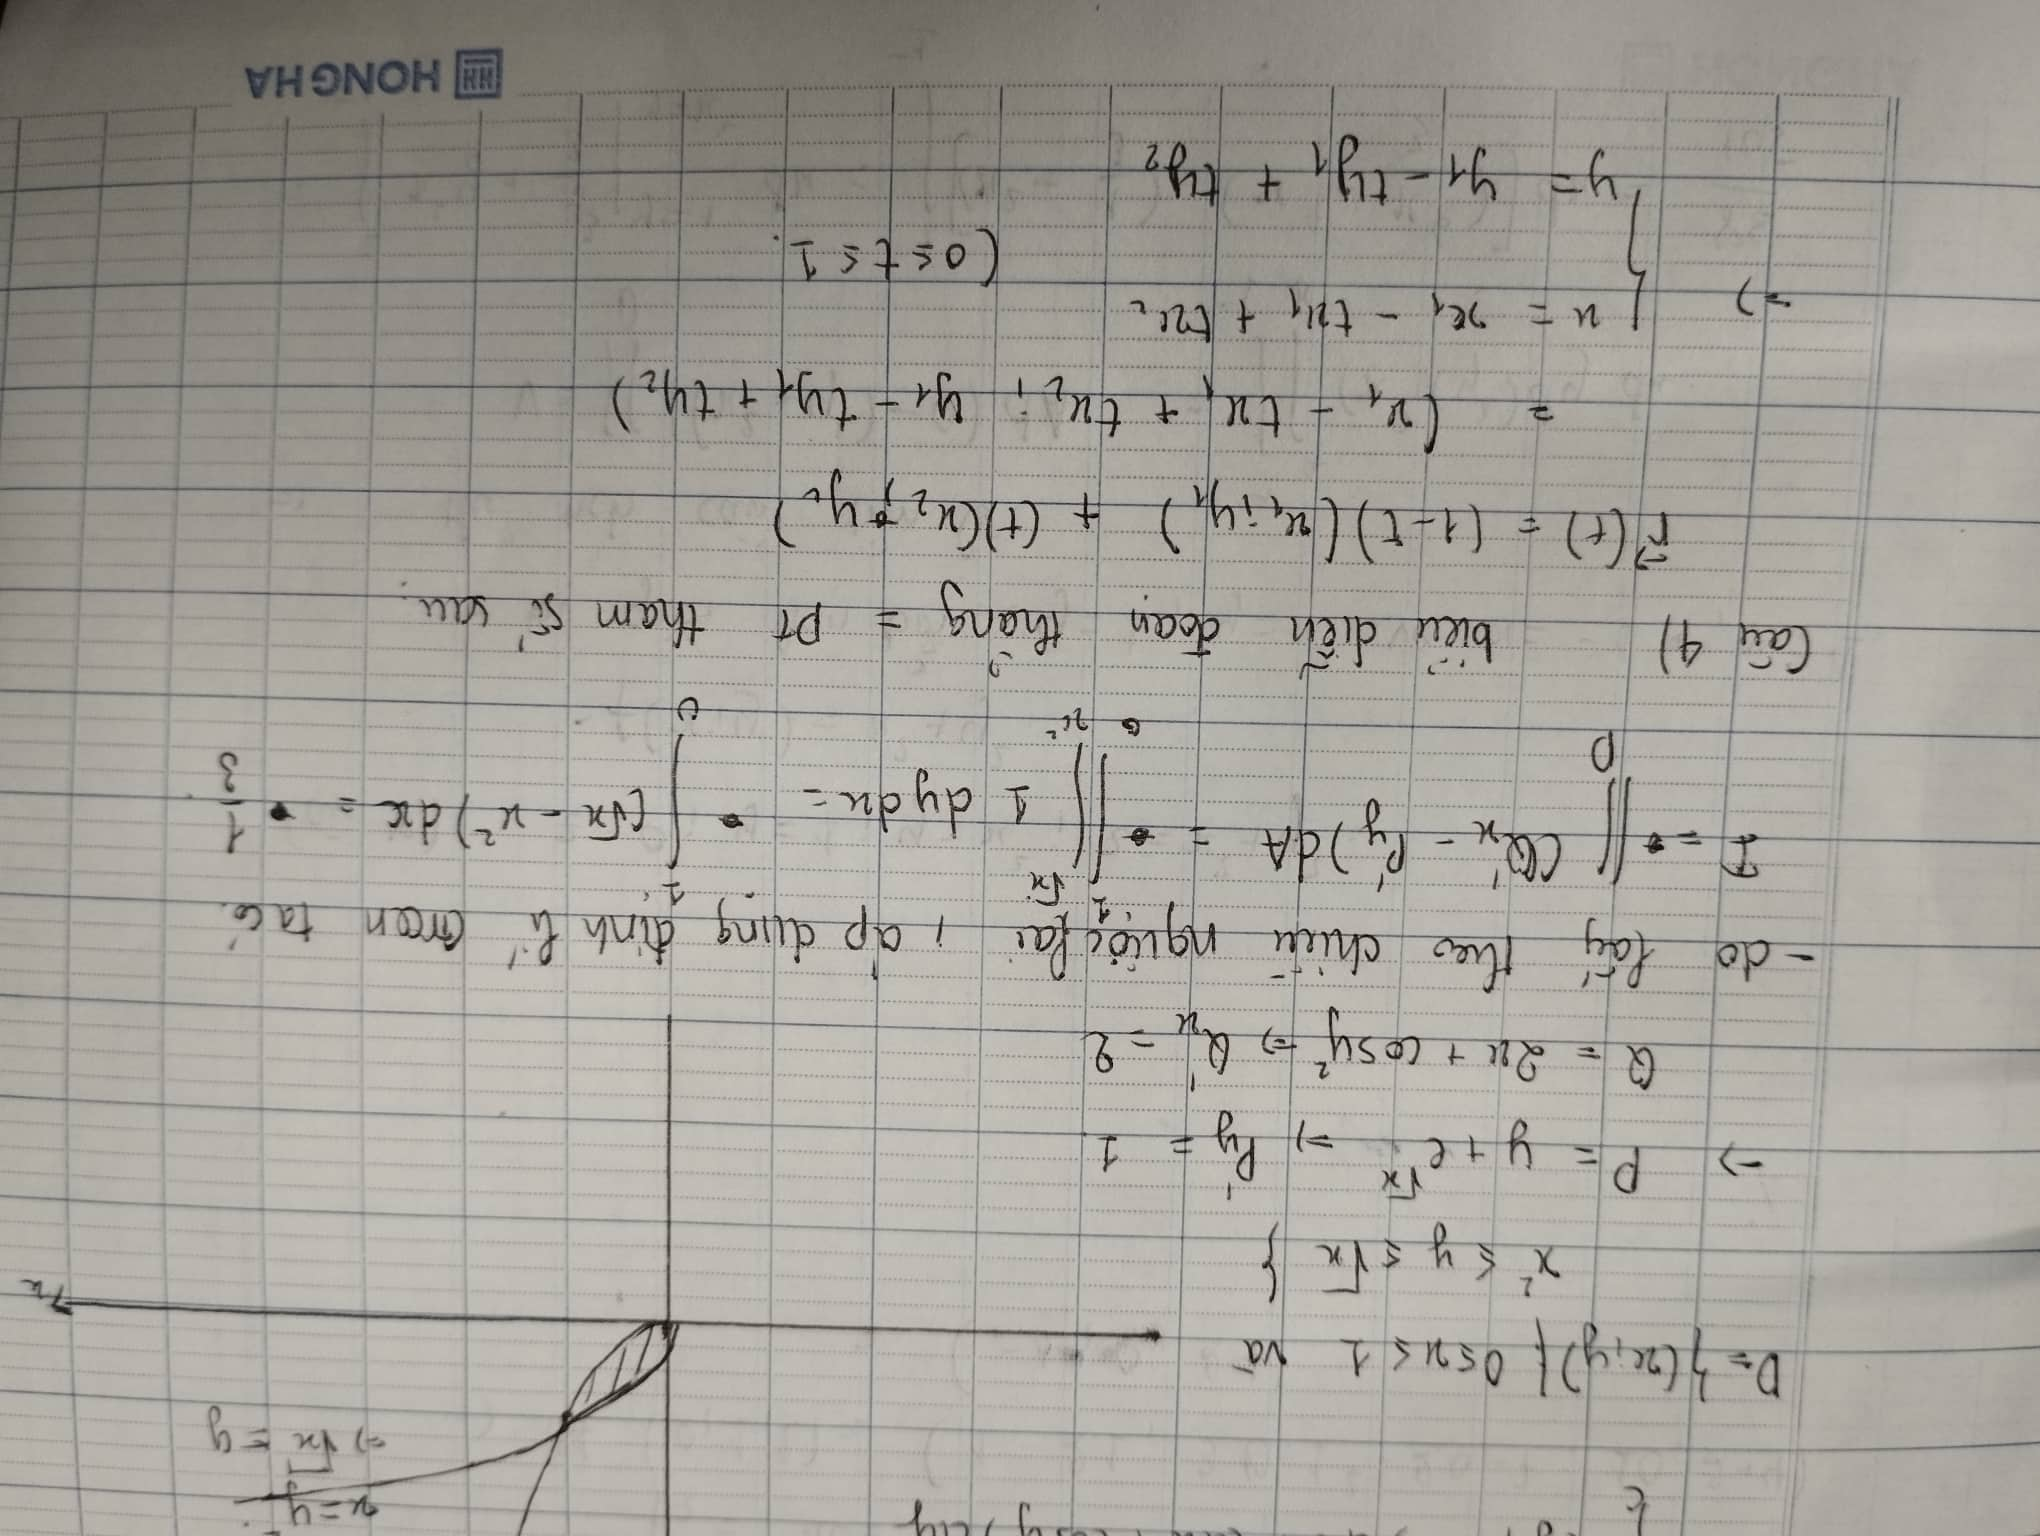 x = y²
⇒ √x = y
D = {(x,y) | 0 ≤ x ≤ 1 và
x² ≤ y ≤ √x }
x
→ P = y + e^√x ⇒ P'y = 1
Q = 2x + cosy² ⇒ Q'x = 2
- do lấy theo chiều ngược lại, áp dụng định lí Green ta có.
I = ∬_D (Q'x - P'y)dA = ∫_0^1 ∫_{x²}^{√x} 1 dydx = ∫_0^1 (√x - x²)dx = 1/3
Câu 4) biểu diễn đoạn thẳng = PT tham số sau.
r⃗(t) = (1-t)(x₁; y₁) + (t)(x₂; y₂)
= (x₁ - tx₁ + tx₂; y₁ - ty₁ + ty₂)
⇒ { x = x₁ - tx₁ + tx₂
(0 ≤ t ≤ 1.
y = y₁ - ty₁ + ty₂
HH HONG HA